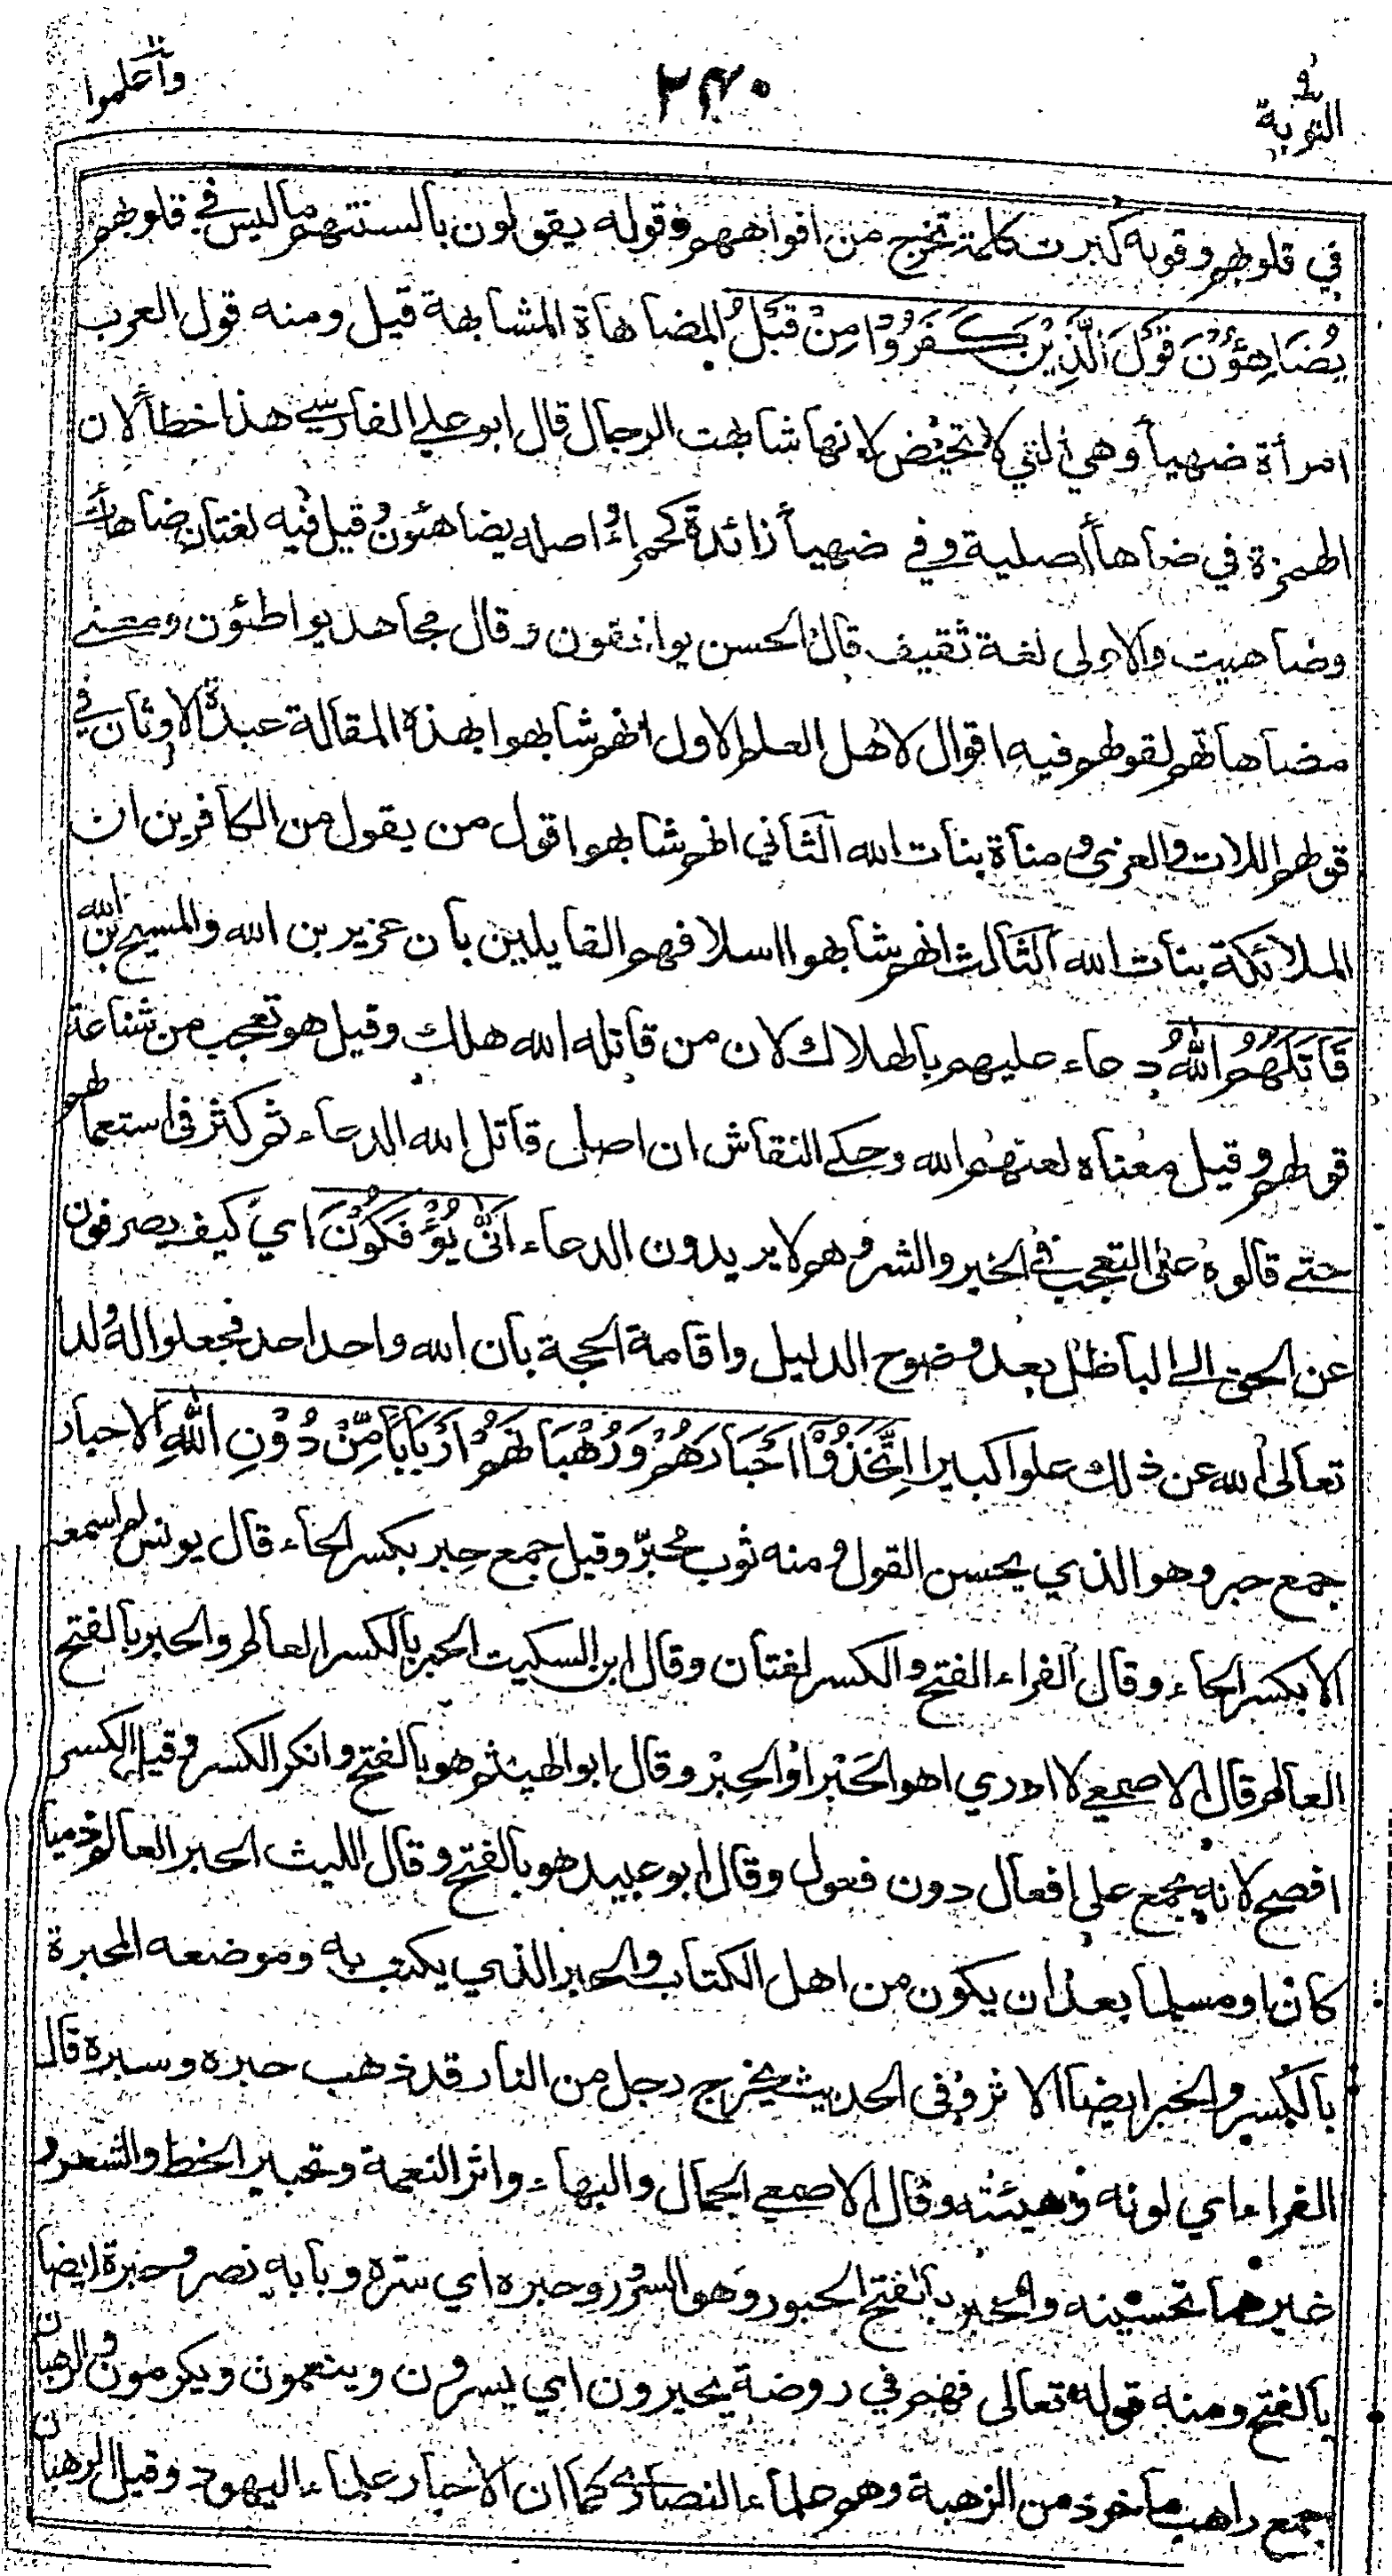 التوبة
٢٣٠
واعلموا
في قلوبهم وقوله كبرت كلمة تخرج من افواههم وقوله يقولون بالسنتهم ما ليس في قلوبهم
يُضَاهِئُوْنَ قَوْلَ الَّذِيْنَ كَفَرُوْا مِنْ قَبْلُ المضاهاة المشابهة قيل ومنه قول العرب
امرأة ضهيأ وهي التي لا تحيض لانها شابهت الرجال قال ابو علي الفارسي هذا خطأ لان
الهمزة في ضاهأ اصلية وفي ضهيأ زائدة كحمراء واصله يضاهئون وقيل فيه لغتان ضاهأت
وضاهيت والاولى لغة ثقيف قال الحسن يوافقون وقال مجاهد يواطئون ومعنى
مضاهاتهم لقولهم فيه اقوال لاهل العلم الاول انهم شابهوا بهذه المقالة عبدة الاوثان في
قولهم اللات والعزى ومناة بنات الله الثاني انهم شابهوا قول من يقول من الكافرين ان
الملائكة بنات الله الثالث انهم شابهوا اسلافهم القايلين بان عزير بن الله والمسيح بن الله
قَاتَلَهُمُ اللّٰهُ دعاء عليهم بالهلاك لان من قاتله الله هلك وقيل هو تعجب من شناعة
قولهم وقيل معناه لعنهم الله وحكى النقاش ان اصل قاتل الله الدعاء ثم كثر في استعمالهم
حتى قالوه على التعجب في الخير والشر وهم لا يريدون الدعاء اَنّٰى يُؤْفَكُوْنَ اي كيف يصرفون
عن الحق الى الباطل بعد وضوح الدليل واقامة الحجة بان الله واحد احد فجعلوا له ولدا
تعالى الله عن ذلك علوا كبيرا اِتَّخَذُوْٓا اَحْبَارَهُمْ وَرُهْبَانَهُمْ اَرْبَابًا مِّنْ دُوْنِ اللّٰهِ الاحبار
جمع حبر وهو الذي يحسن القول ومنه ثوب مُحبّر وقيل جمع حِبر بكسر الحاء قال يونس لم اسمعه
الا بكسر الحاء وقال الفراء الفتح والكسر لغتان وقال ابن السكيت الحبر بالكسر العالم والحبر بالفتح
العالم قال الاصمعي لا ادري اهو الحَبْر او الحِبْر وقال ابو الهيثم هو بالفتح وانكر الكسر وقيل الكسر
افصح لانه يجمع على افعال دون فعول وقال ابو عبيد هو بالفتح وقال الليث الحبر العالم ذميا
كان او مسلما بعد ان يكون من اهل الكتاب والحبر الذي يكتب به وموضعه المحبرة
بالكسر والحبر ايضا الاثر وفي الحديث يخرج رجل من النار قد ذهب حبره وسبره قال
الفراء اي لونه وهيئته وقال الاصمعي الجمال والبهاء واثر النعمة وتحبير الخط والشعر و
غيرهما تحسينه والحبر بالفتح الحبور وهو السرور وحبره اي سره وبابه نصر وحبرة ايضا
بالفتح ومنه قوله تعالى فهم في روضة يحبرون اي يسرون وينعمون ويكرمون والرهبان
جمع راهب ماخوذ من الرهبة وهم علماء النصارى كما ان الاحبار علماء اليهود وقيل الرهبان